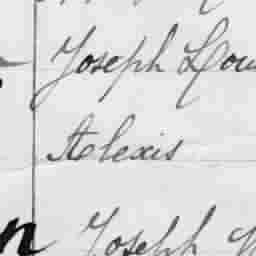 Joseph Lou
Alexis
n Joseph